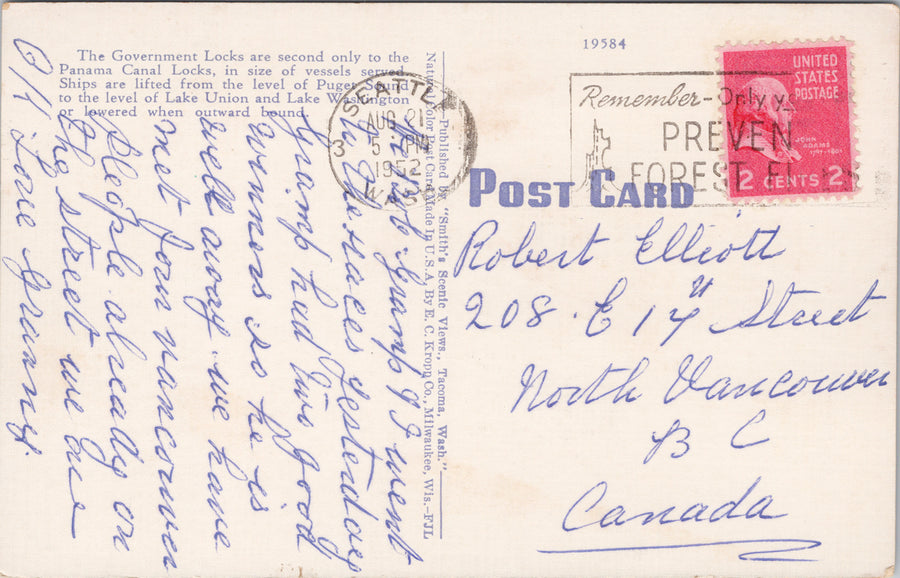 The Government Locks are second only to the
Panama Canal Locks, in size of vessels served.
Ships are lifted from the level of Puget Sound
to the level of Lake Union and Lake Washington
or lowered when outward bound.
19584
SEATTLE
AUG 21
5 PM
1952
WASH.
3
Remember-Only y
PREVEN
FOREST FI
UNITED
STATES
POSTAGE
JOHN
ADAMS
1797-1801
2 CENTS 2
POST CARD
—Published by "Smith's Scenic Views., Tacoma, Wash."—
Natural Color Post Card Made In U. S. A. By E. C. Kropp Co., Milwaukee, Wis.-FJL
Gramp & I went
to the races yesterday
Gramp had two good
winners so he is
well away we have
met four vancouver
people already on
the street we are
O/K Love Granny.
Robert Elliott
208 . E 14 Street
North Vancouver
B C
Canada